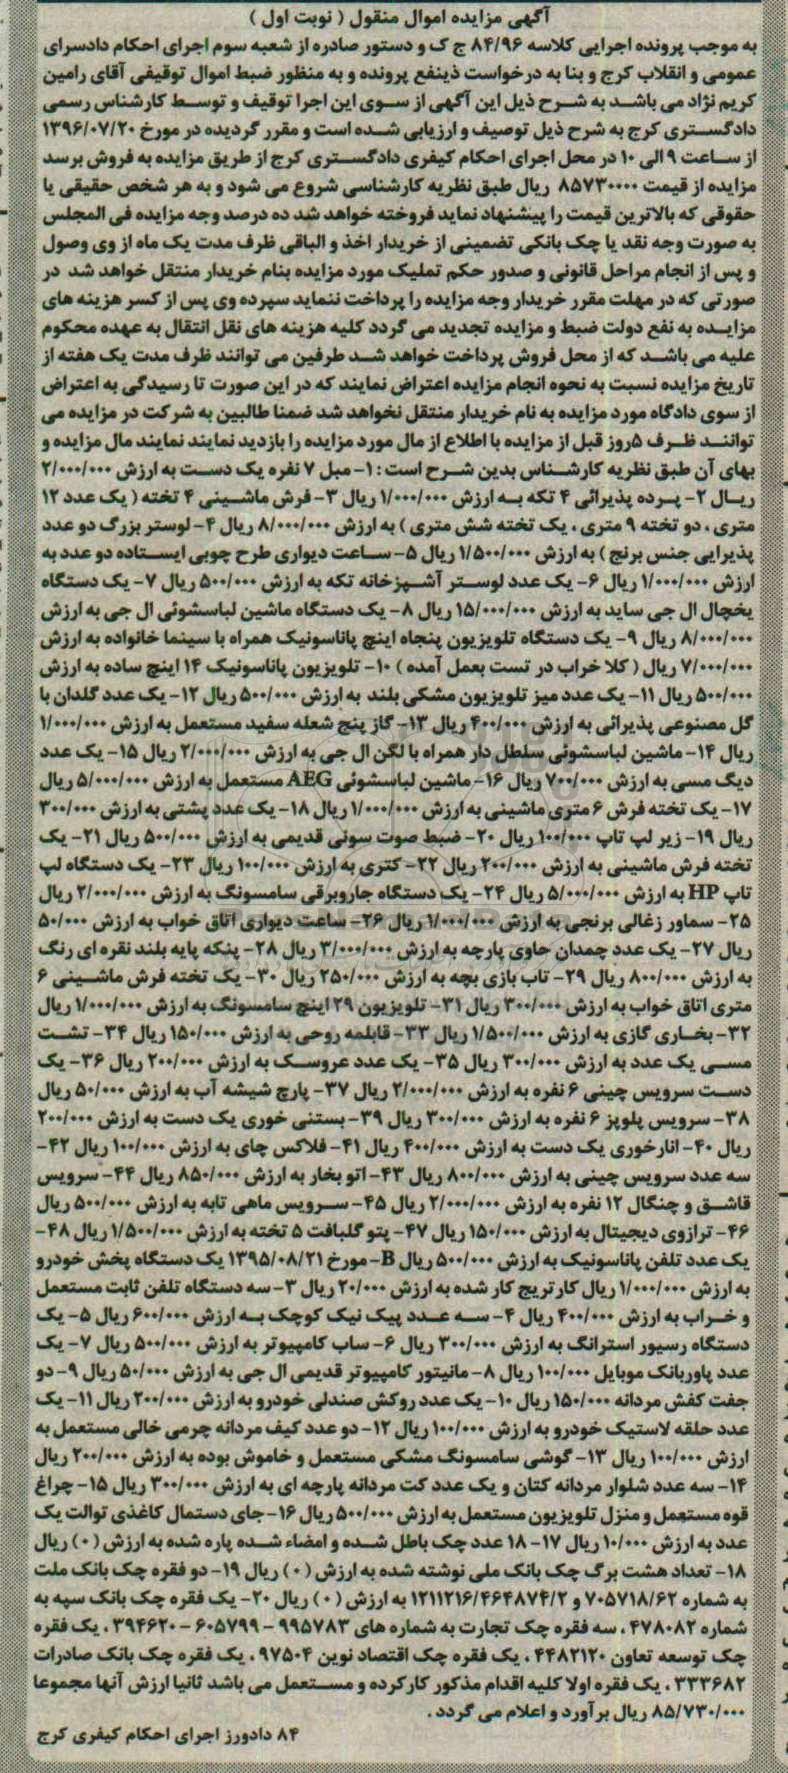 آگهی مزایده اموال منقول ( نوبت اول )
به موجب پرونده اجرایی کلاسه ۸۴/۹۶ ج ک و دستور صادره از شعبه سوم اجرای احکام دادسرای
عمومی و انقلاب کرج و بنا به درخواست ذینفع پرونده و به منظور ضبط اموال توقیفی آقای رامین
کریم نژاد می باشد به شرح ذیل این آگهی از سوی این اجرا توقیف و توسط کارشناس رسمی
دادگستری کرج به شرح ذیل توصیف و ارزیابی شده است و مقرر گردیده در مورخ ۱۳۹۶/۰۷/۲۰
از ساعت ۹ الی ۱۰ در محل اجرای احکام کیفری دادگستری کرج از طریق مزایده به فروش برسد
مزایده از قیمت ۸۵۷۳۰۰۰۰ ریال طبق نظریه کارشناسی شروع می شود و به هر شخص حقیقی یا
حقوقی که بالاترین قیمت را پیشنهاد نماید فروخته خواهد شد ده درصد وجه مزایده فی المجلس
به صورت وجه نقد یا چک بانکی تضمینی از خریدار اخذ و الباقی ظرف مدت یک ماه از وی وصول
و پس از انجام مراحل قانونی و صدور حکم تملیک مورد مزایده بنام خریدار منتقل خواهد شد در
صورتی که در مهلت مقرر خریدار وجه مزایده را پرداخت ننماید سپرده وی پس از کسر هزینه های
مزایده به نفع دولت ضبط و مزایده تجدید می گردد کلیه هزینه های نقل انتقال به عهده محکوم
علیه می باشد که از محل فروش پرداخت خواهد شد طرفین می توانند ظرف مدت یک هفته از
تاریخ مزایده نسبت به نحوه انجام مزایده اعتراض نمایند که در این صورت تا رسیدگی به اعتراض
از سوی دادگاه مورد مزایده به نام خریدار منتقل نخواهد شد ضمنا طالبین به شرکت در مزایده می
توانند ظرف ۵روز قبل از مزایده با اطلاع از مال مورد مزایده را بازدید نمایند نمایند مال مزایده و
بهای آن طبق نظریه کارشناس بدین شرح است : ۱- مبل ۷ نفره یک دست به ارزش ۲/۰۰۰/۰۰۰
ریال ۲- پرده پذیرائی ۴ تکه به ارزش ۱/۰۰۰/۰۰۰ ریال ۳- فرش ماشینی ۴ تخته ( یک عدد ۱۲
متری ، دو تخته ۹ متری ، یک تخته شش متری ) به ارزش ۸/۰۰۰/۰۰۰ ریال ۴- لوستر بزرگ دو عدد
پذیرایی جنس برنج ) به ارزش ۱/۵۰۰/۰۰۰ ریال ۵- ساعت دیواری طرح چوبی ایستاده دو عدد به
ارزش ۱/۰۰۰/۰۰۰ ریال ۶- یک عدد لوستر آشپزخانه تکه به ارزش ۵۰۰/۰۰۰ ریال ۷- یک دستگاه
یخچال ال جی ساید به ارزش ۱۵/۰۰۰/۰۰۰ ریال ۸- یک دستگاه ماشین لباسشوئی ال جی به ارزش
۸/۰۰۰/۰۰۰ ریال ۹- یک دستگاه تلویزیون پنجاه اینچ پاناسونیک همراه با سینما خانواده به ارزش
۷/۰۰۰/۰۰۰ ریال ( کلا خراب در تست بعمل آمده ) ۱۰- تلویزیون پاناسونیک ۱۴ اینچ ساده به ارزش
۵۰۰/۰۰۰ ریال ۱۱- یک عدد میز تلویزیون مشکی بلند به ارزش ۵۰۰/۰۰۰ ریال ۱۲- یک عدد گلدان با
گل مصنوعی پذیرائی به ارزش ۴۰۰/۰۰۰ ریال ۱۳- گاز پنج شعله سفید مستعمل به ارزش ۱/۰۰۰/۰۰۰
ریال ۱۴- ماشین لباسشوئی سلطل دار همراه با لگن ال جی به ارزش ۲/۰۰۰/۰۰۰ ریال ۱۵- یک عدد
دیگ مسی به ارزش ۷۰۰/۰۰۰ ریال ۱۶- ماشین لباسشوئی AEG مستعمل به ارزش ۵/۰۰۰/۰۰۰ ریال
۱۷- یک تخته فرش ۶ متری ماشینی به ارزش ۱/۰۰۰/۰۰۰ ریال ۱۸- یک عدد پشتی به ارزش ۳۰۰/۰۰۰
ریال ۱۹- زیر لپ تاپ ۱۰۰/۰۰۰ ریال ۲۰- ضبط صوت سونی قدیمی به ارزش ۵۰۰/۰۰۰ ریال ۲۱- یک
تخته فرش ماشینی به ارزش ۲۰۰/۰۰۰ ریال ۲۲- کتری به ارزش ۱۰۰/۰۰۰ ریال ۲۳- یک دستگاه لپ
تاپ HP به ارزش ۵/۰۰۰/۰۰۰ ریال ۲۴- یک دستگاه جاروبرقی سامسونگ به ارزش ۲/۰۰۰/۰۰۰ ریال
۲۵- سماور زغالی برنجی به ارزش ۱/۰۰۰/۰۰۰ ریال ۲۶- ساعت دیواری اتاق خواب به ارزش ۵۰/۰۰۰
ریال ۲۷- یک عدد چمدان حاوی پارچه به ارزش ۳/۰۰۰/۰۰۰ ریال ۲۸- پنکه پایه بلند نقره ای رنگ
به ارزش ۸۰۰/۰۰۰ ریال ۲۹- تاب بازی بچه به ارزش ۲۵۰/۰۰۰ ریال ۳۰- یک تخته فرش ماشینی ۶
متری اتاق خواب به ارزش ۳۰۰/۰۰۰ ریال ۳۱- تلویزیون ۲۹ اینچ سامسونگ به ارزش ۱/۰۰۰/۰۰۰ ریال
۳۲- بخاری گازی به ارزش ۱/۵۰۰/۰۰۰ ریال ۳۳- قابلمه روحی به ارزش ۱۵۰/۰۰۰ ریال ۳۴- تشت
مسی یک عدد به ارزش ۳۰۰/۰۰۰ ریال ۳۵- یک عدد عروسک به ارزش ۲۰۰/۰۰۰ ریال ۳۶- یک
دست سرویس چینی ۶ نفره به ارزش ۲/۰۰۰/۰۰۰ ریال ۳۷- پارچ شیشه آب به ارزش ۵۰/۰۰۰ ریال
۳۸- سرویس پلوپز ۶ نفره به ارزش ۳۰۰/۰۰۰ ریال ۳۹- بستنی خوری یک دست به ارزش ۲۰۰/۰۰۰
ریال ۴۰- انارخوری یک دست به ارزش ۴۰۰/۰۰۰ ریال ۴۱- فلاکس چای به ارزش ۱۰۰/۰۰۰ ریال ۴۲-
سه عدد سرویس چینی به ارزش ۸۰۰/۰۰۰ ریال ۴۳- اتو بخار به ارزش ۸۵۰/۰۰۰ ریال ۴۴- سرویس
قاشق و چنگال ۱۲ نفره به ارزش ۲/۰۰۰/۰۰۰ ریال ۴۵- سرویس ماهی تابه به ارزش ۵۰۰/۰۰۰ ریال
۴۶- ترازوی دیجیتال به ارزش ۱۵۰/۰۰۰ ریال ۴۷- پتو گلبافت ۵ تخته به ارزش ۱/۵۰۰/۰۰۰ ریال ۴۸-
یک عدد تلفن پاناسونیک به ارزش ۵۰۰/۰۰۰ ریال B- مورخ ۱۳۹۵/۰۸/۲۱ یک دستگاه پخش خودرو
به ارزش ۱/۰۰۰/۰۰۰ ریال کارتریج کار شده به ارزش ۲۰/۰۰۰ ریال ۳- سه دستگاه تلفن ثابت مستعمل
و خراب به ارزش ۴۰۰/۰۰۰ ریال ۴- سه عدد پیک نیک کوچک به ارزش ۶۰۰/۰۰۰ ریال ۵- یک
دستگاه رسیور استرانگ به ارزش ۳۰۰/۰۰۰ ریال ۶- ساب کامپیوتر به ارزش ۵۰۰/۰۰۰ ریال ۷- یک
عدد پاوربانک موبایل ۱۰۰/۰۰۰ ریال ۸- مانیتور کامپیوتر قدیمی ال جی به ارزش ۵۰/۰۰۰ ریال ۹- دو
جفت کفش مردانه ۱۵۰/۰۰۰ ریال ۱۰- یک عدد روکش صندلی خودرو به ارزش ۲۰۰/۰۰۰ ریال ۱۱- یک
عدد حلقه لاستیک خودرو به ارزش ۱۰۰/۰۰۰ ریال ۱۲- دو عدد کیف مردانه چرمی خالی مستعمل به
ارزش ۱۰۰/۰۰۰ ریال ۱۳- گوشی سامسونگ مشکی مستعمل و خاموش بوده به ارزش ۲۰۰/۰۰۰ ریال
۱۴- سه عدد شلوار مردانه کتان و یک عدد کت مردانه پارچه ای به ارزش ۳۰۰/۰۰۰ ریال ۱۵- چراغ
قوه مستعمل و منزل تلویزیون مستعمل به ارزش ۵۰۰/۰۰۰ ریال ۱۶- جای دستمال کاغذی توالت یک
عدد به ارزش ۱۰/۰۰۰ ریال ۱۷- ۱۸ عدد چک باطل شده و امضاء شده پاره شده به ارزش ( ۰ ) ریال
۱۸- تعداد هشت برگ چک بانک ملی نوشته شده به ارزش ( ۰ ) ریال ۱۹- دو فقره چک بانک ملت
به شماره ۷۰۵۷۱۸/۶۲ و ۱۲۱۱۲۱۶/۴۶۴۸۷۴/۲ به ارزش ( ۰ ) ریال ۲۰- یک فقره چک بانک سپه به
شماره ۴۷۸۰۸۲ ، سه فقره چک تجارت به شماره های ۹۹۵۷۸۳ - ۶۰۵۷۹۹ - ۳۹۴۶۲۰ ، یک فقره
چک توسعه تعاون ۴۴۸۲۱۲۰ ، یک فقره چک اقتصاد نوین ۹۷۵۰۴ ، یک فقره چک بانک صادرات
۳۳۳۶۸۲ ، یک فقره اولا کلیه اقدام مذکور کارکرده و مستعمل می باشد ثانیا ارزش آنها مجموعا
۸۵/۷۳۰/۰۰۰ ریال برآورد و اعلام می گردد .
۸۴ دادورز اجرای احکام کیفری کرج